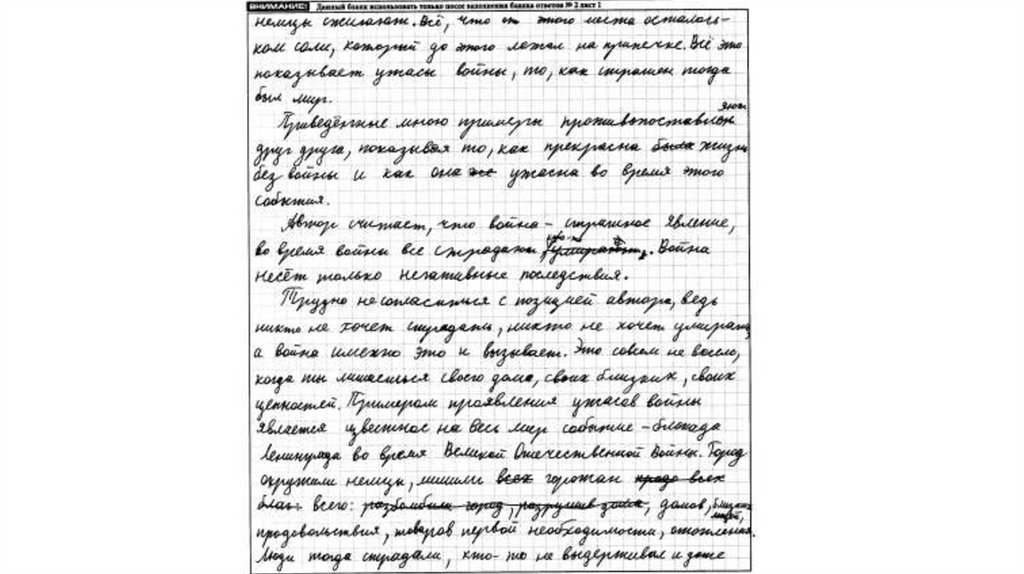 ВНИМАНИЕ! Данный бланк использовать только после заполнения бланка ответов № 2 лист 1
немцы сжигают. Всё, что от этого места осталось -
ком соли, который до этого лежал на припечке. Всё это
показывает ужасы войны, то, как страшен тогда
был мир.
Приведённые мною примеры противопоставлены
друг друга, показывая то, как прекрасна была жизнь
без войны и как она же ужасна во время этого
события.
Автор считает, что война - страшное явление,
во время войны все страдают, кто-то умирает. Война
несёт только негативные последствия.
Трудно несогласиться с позицией автора, ведь
никто не хочет страдать, никто не хочет умирать,
а война именно это и вызывает. Это совсем не весело,
когда ты лишаешься своего дома, своих близких, своих
ценностей. Примером проявления ужасов войны
является известное на весь мир событие - блокада
Ленинграда во время Великой Отечественной Войны. Город
окружили немцы, лишили всех горожан всех
благ. всего: разбомбили город, разрушив дома, домов, близких людей,
продовольствия, товаров первой необходимости, отопления.
Люди тогда страдали, кто-то не выдерживал и даже